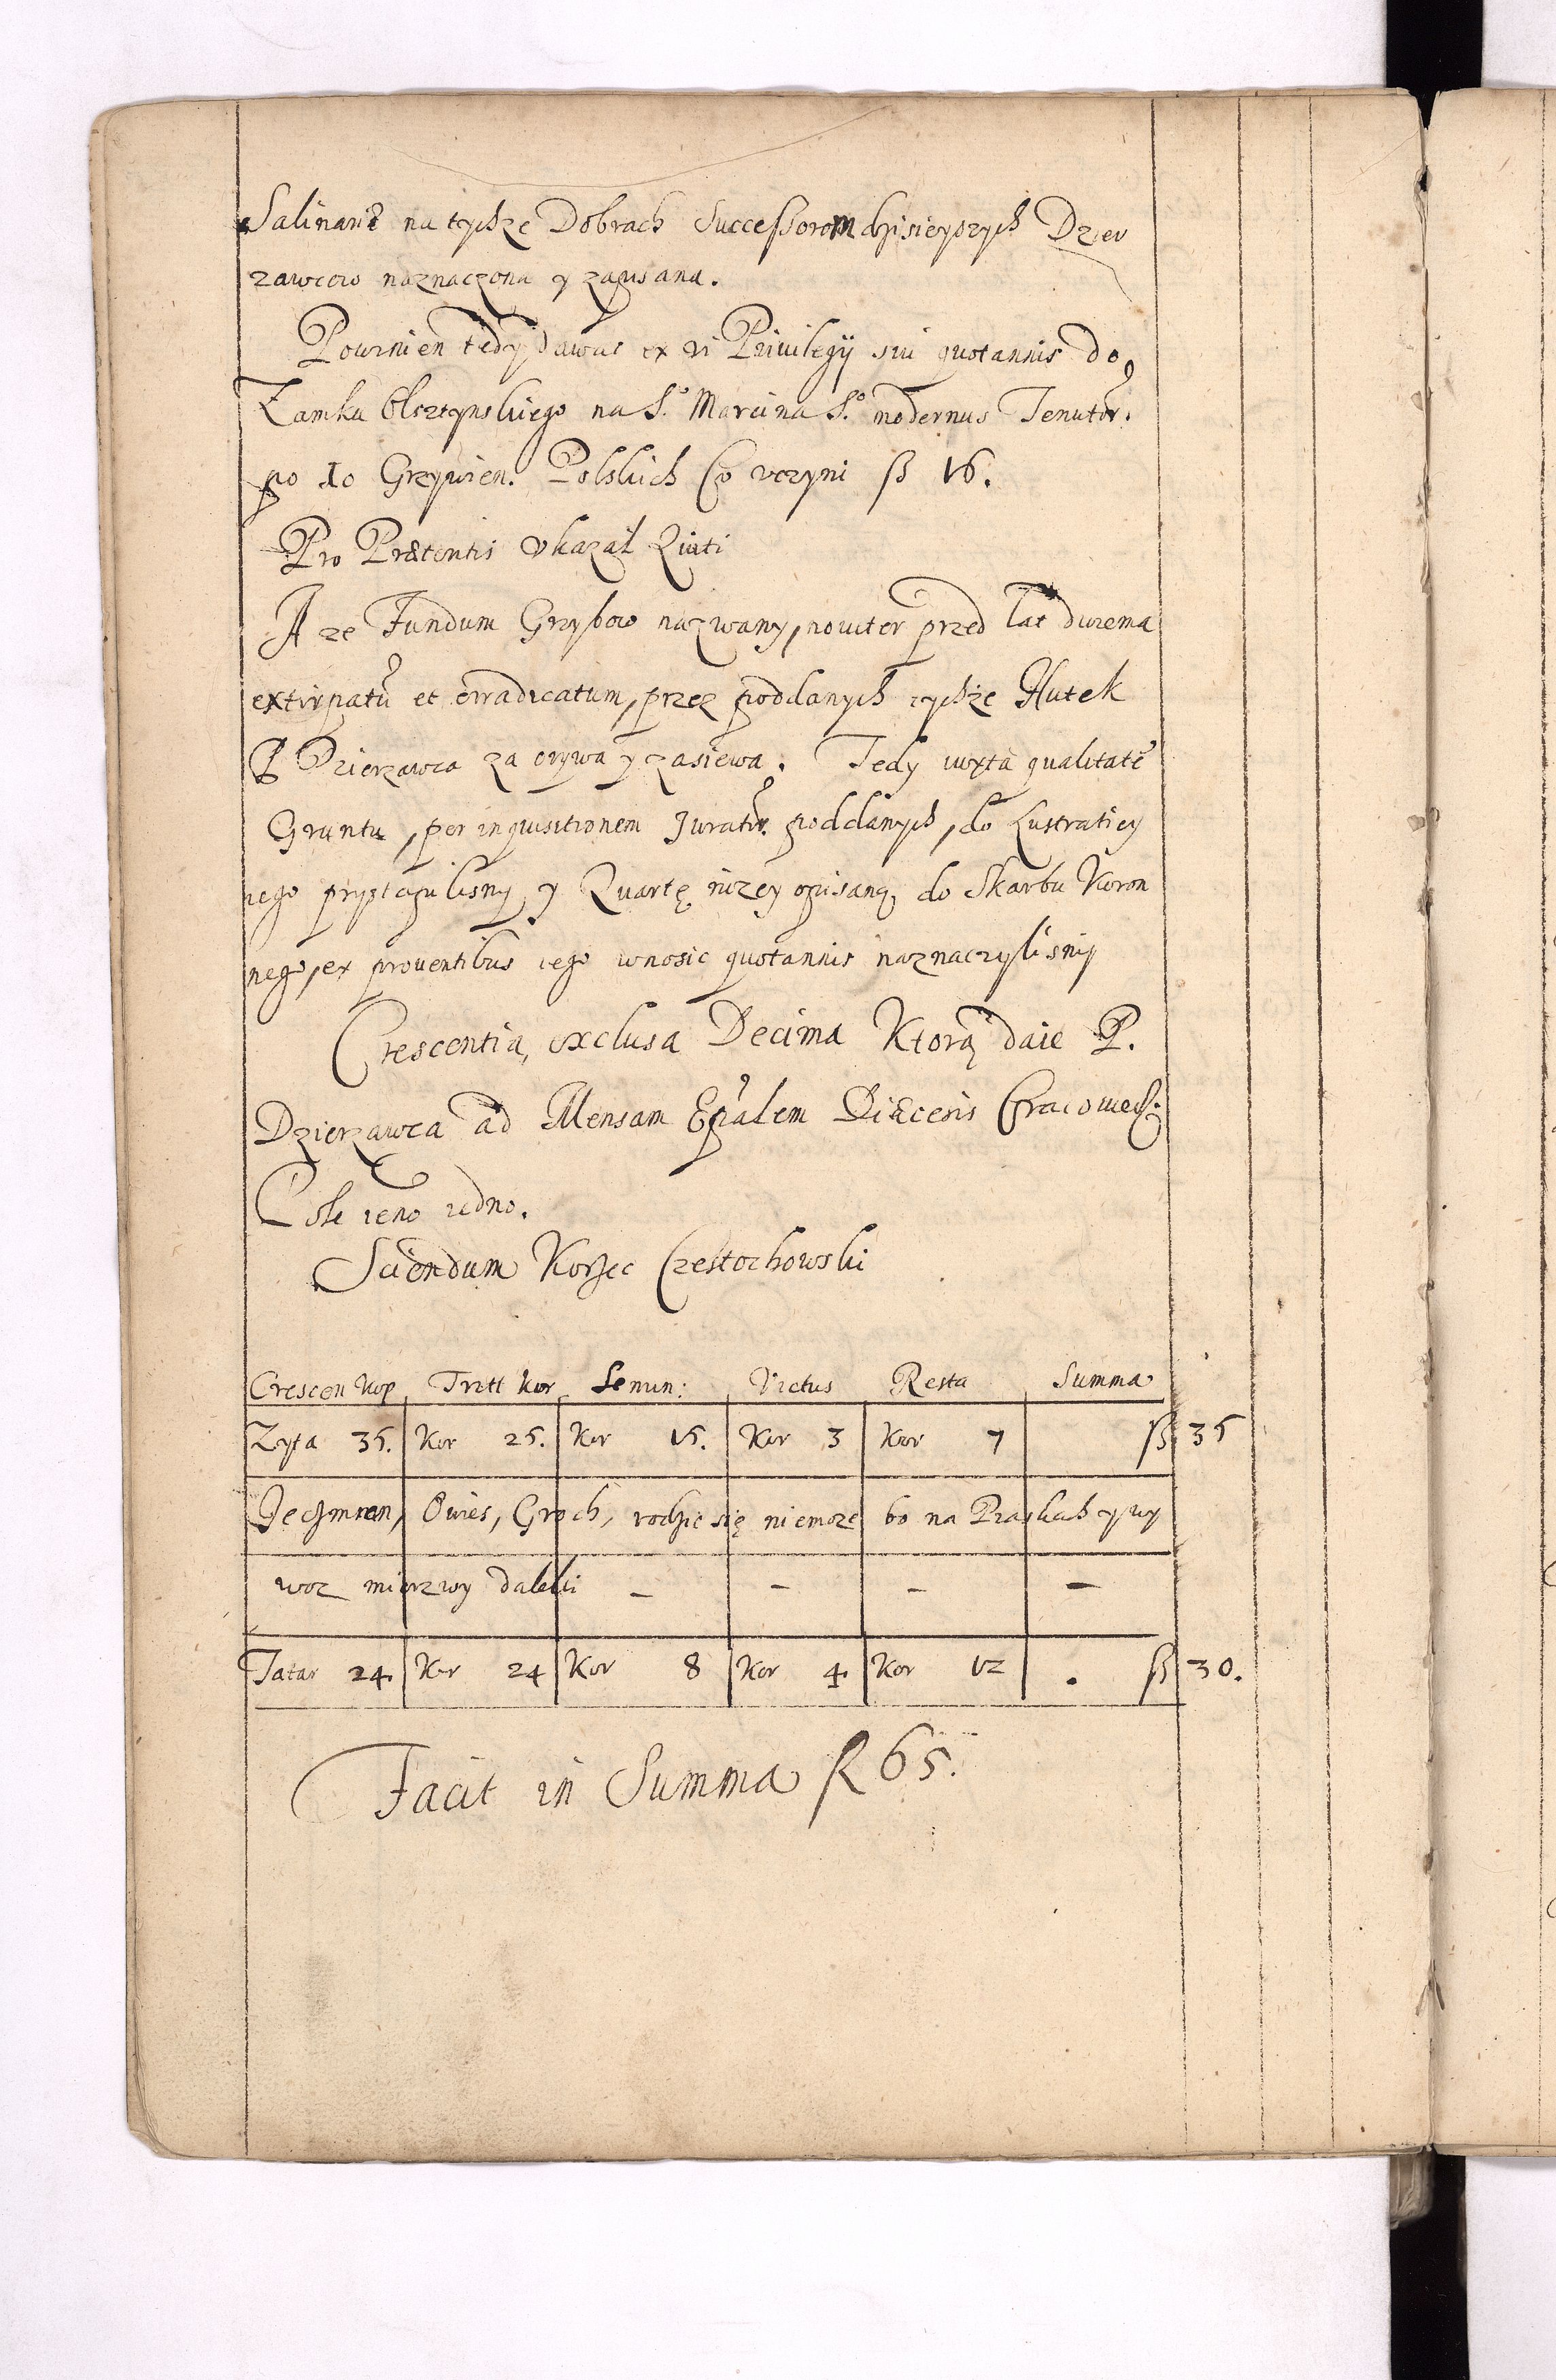 Salinariæ na tychże Dobrach Successorom dzisieyszych Dzier
zawcow naznaczona y zapisana.
Powinien tedy dawac ex vi Privilegij sui quotannis do
Zamku Olsztynskiego na S.º Marcina S.º modernus Tenutor.
po 10 Grzywien. Polskich Co vczyni ß 16.
Pro Prætentis Vkazał Quiti
A ze Fundum Grzybow nazwany, noviter przed lat dwiema
extirpatū et erradicatum, przez poddanych tychże Hutek
P Dzierzawca za orywa y zasiewa. Tedy iuxta qualitatē
Gruntu, per inquisitionem Jurator. poddanych, do Lustratiey
iego przystąpilismy y Quartę nizey opisaną do Skarbu Koron
nego, ex proventibus iego wnosic quotannis naznaczylismy
Crescentia, exclusa Decima Ktorą daie P.
Dzierzawca ad Mensam Ep̄alem Diæcesis Cracoviens.
Pole ieno iedno.
Sciendum Korzec Częstochowski
Crescen Kop Tritt kor Semin: Victus Resta Summa
Zyta 35. Kor 25. Kor 15. Kor 3 Kor 7 ß 35
Jeczmien, Owies, Groch, rodzic się niemoze bo na Piaskach y wy
woz mierzwy daleki – – – –
Tatar 24. Kor 24 Kor 8 Kor 4. Kor 12 . ß 30.
Facit in Summa ß 65.